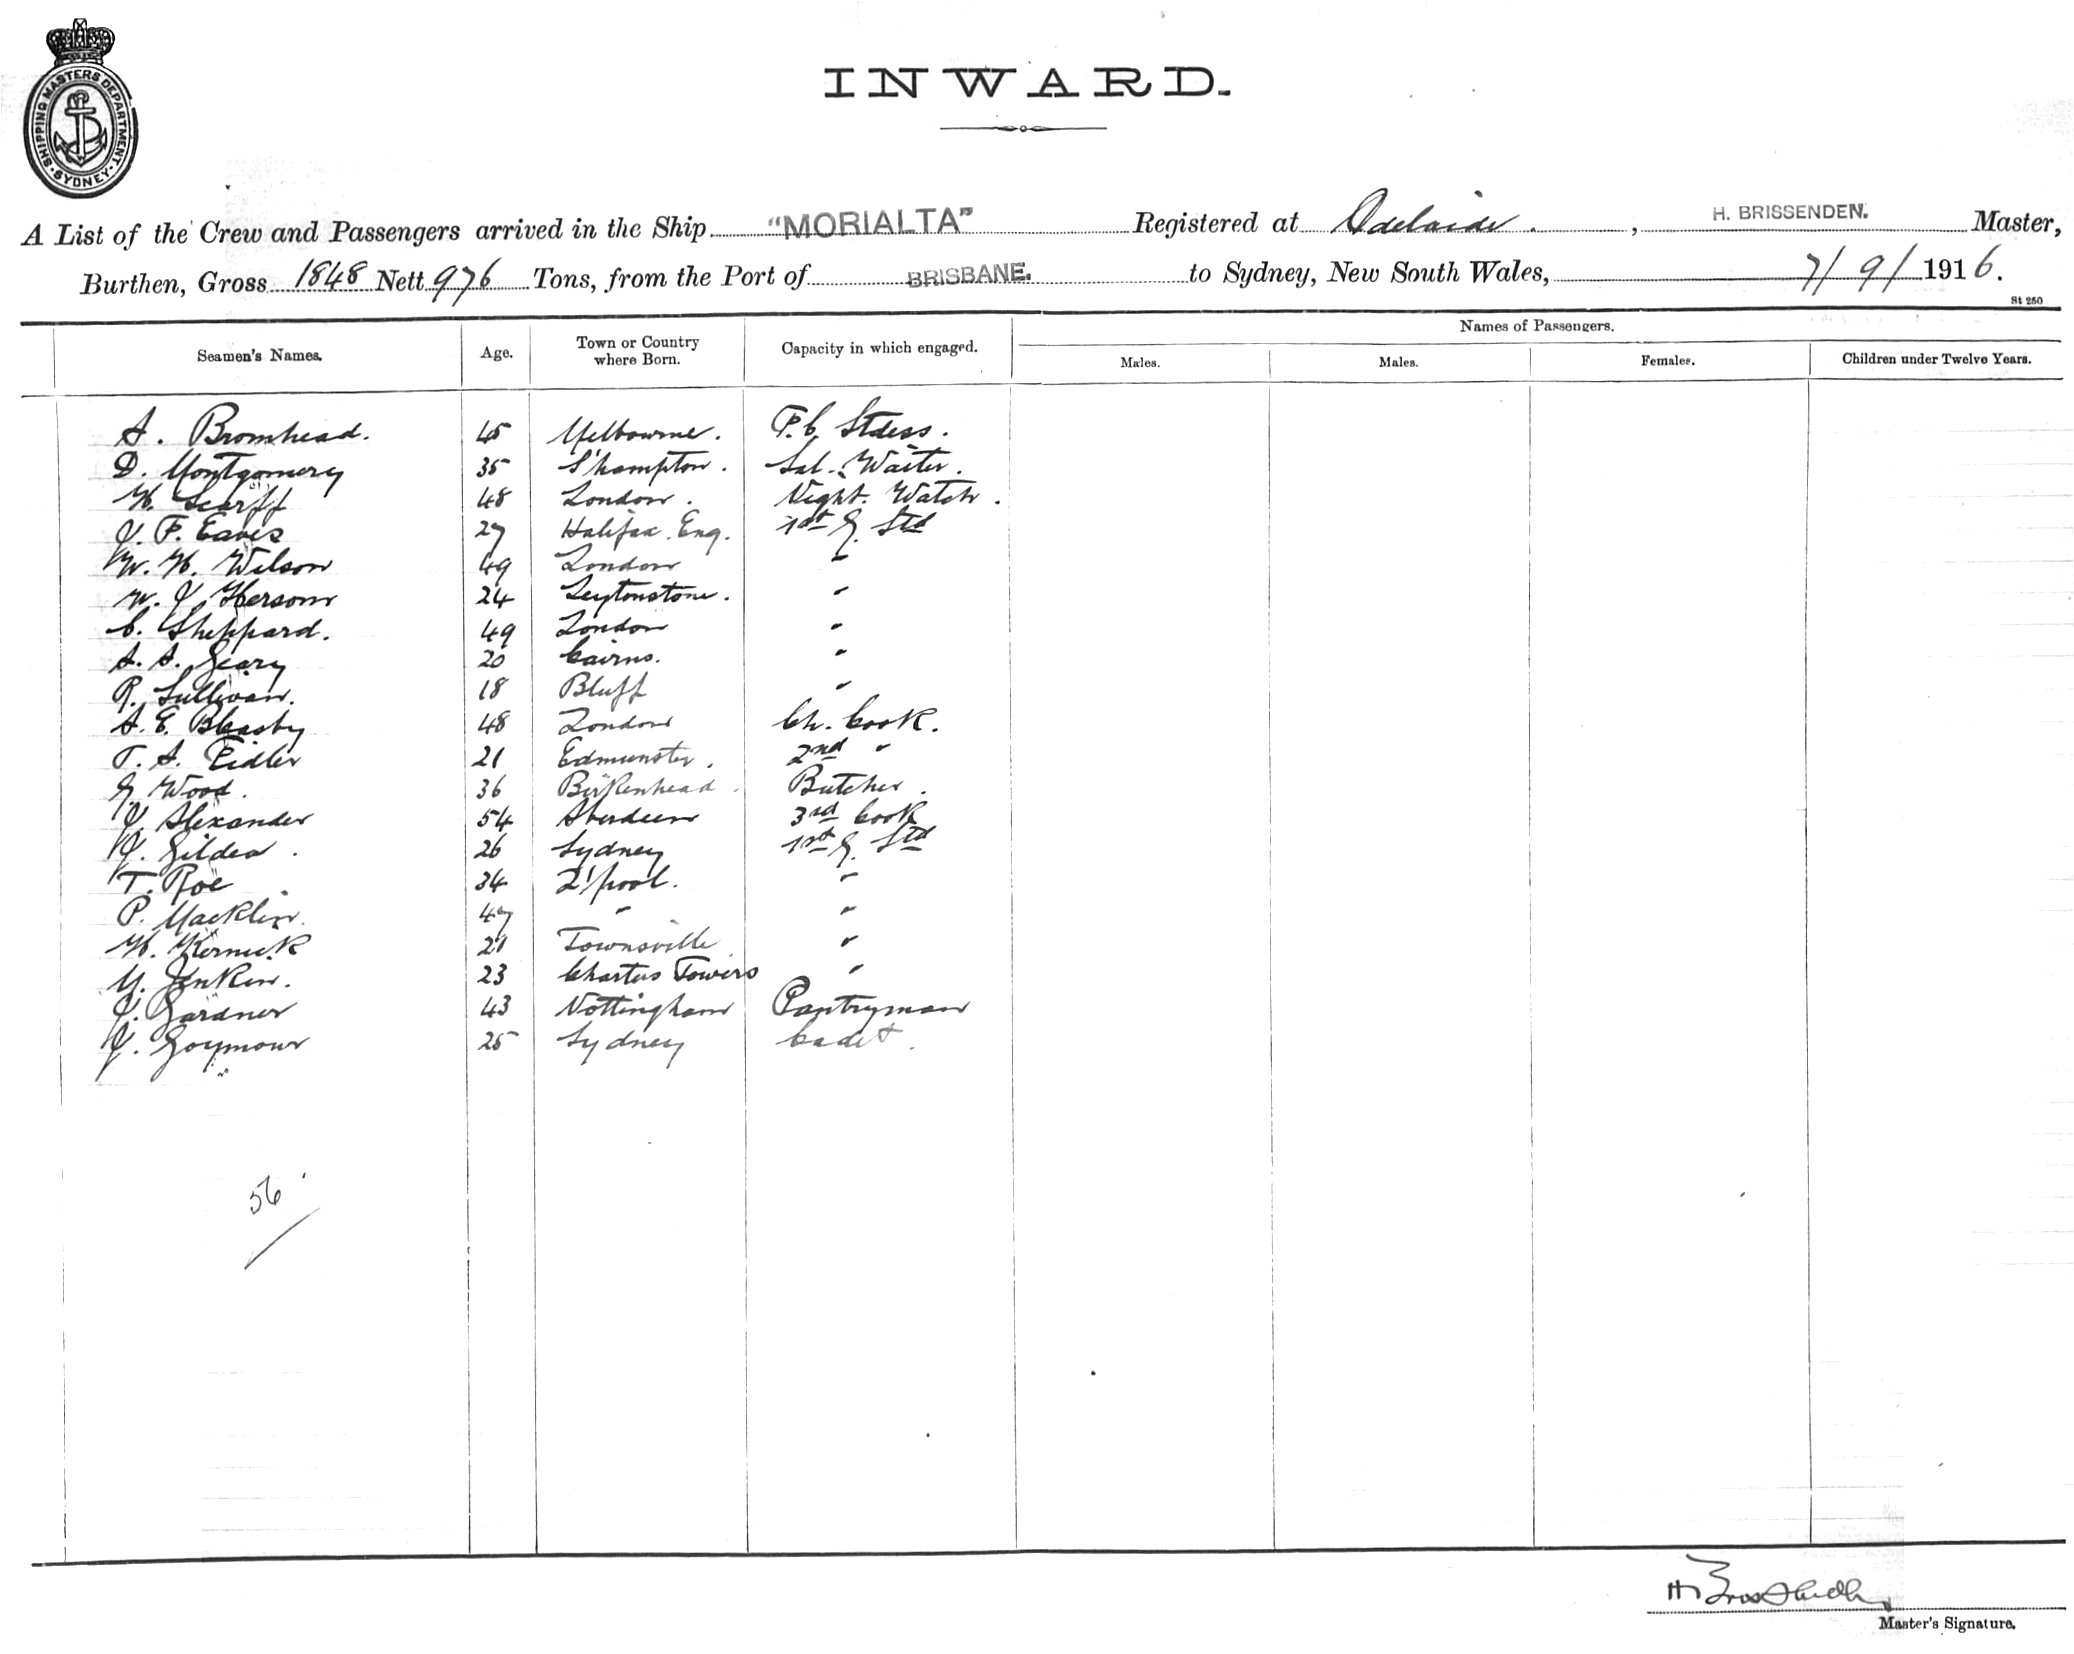 SHIPPING MASTERS DEPARTMENT
SYDNEY
INWARD.
A List of the Crew and Passengers arrived in the Ship "MORIALTA" Registered at Adelaide. , H. BRISSENDEN. Master,
Burthen, Gross 1848 Nett 976 Tons, from the Port of BRISBANE. to Sydney, New South Wales, 7/9/1916.
St 250
Names of Passengers.
Seamen's Names. Age. Town or Country where Born. Capacity in which engaged. Males. Males. Females. Children under Twelve Years.
A. Bromhead. 45 Melbourne. F.C. Stdess.
D. Montgomery 35 S'hampton. Sal. Waiter.
H. Scarff 48 London. Night. Watch.
J. F. Eaves 27 Halifax. Eng. 1st G. Std
W. H. Wilson 49 London "
W. J Hersom 24 Leytonstone. "
C. Sheppard. 49 London "
A. A. Geary 20 Cairns. "
R. Sullivan. 18 Bluff "
A. E. Bleasby 48 London Ch. Cook.
T. A. Eidler 21 Edmunster. 2nd "
G Wood. 36 Birkenhead. Butcher.
J Alexander 54 Aberdeen 3rd Cook
J. Gildea. 26 Sydney 1st G. Std
T. Roe 34 L'pool. "
P. Macklin. 47 " "
H. Kernick 21 Townsville "
M. Jenkin. 23 Charters Towers "
J. Gardner 43 Nottingham Pantryman
J. Goymour 25 Sydney Cadet.
56
Master's Signature.